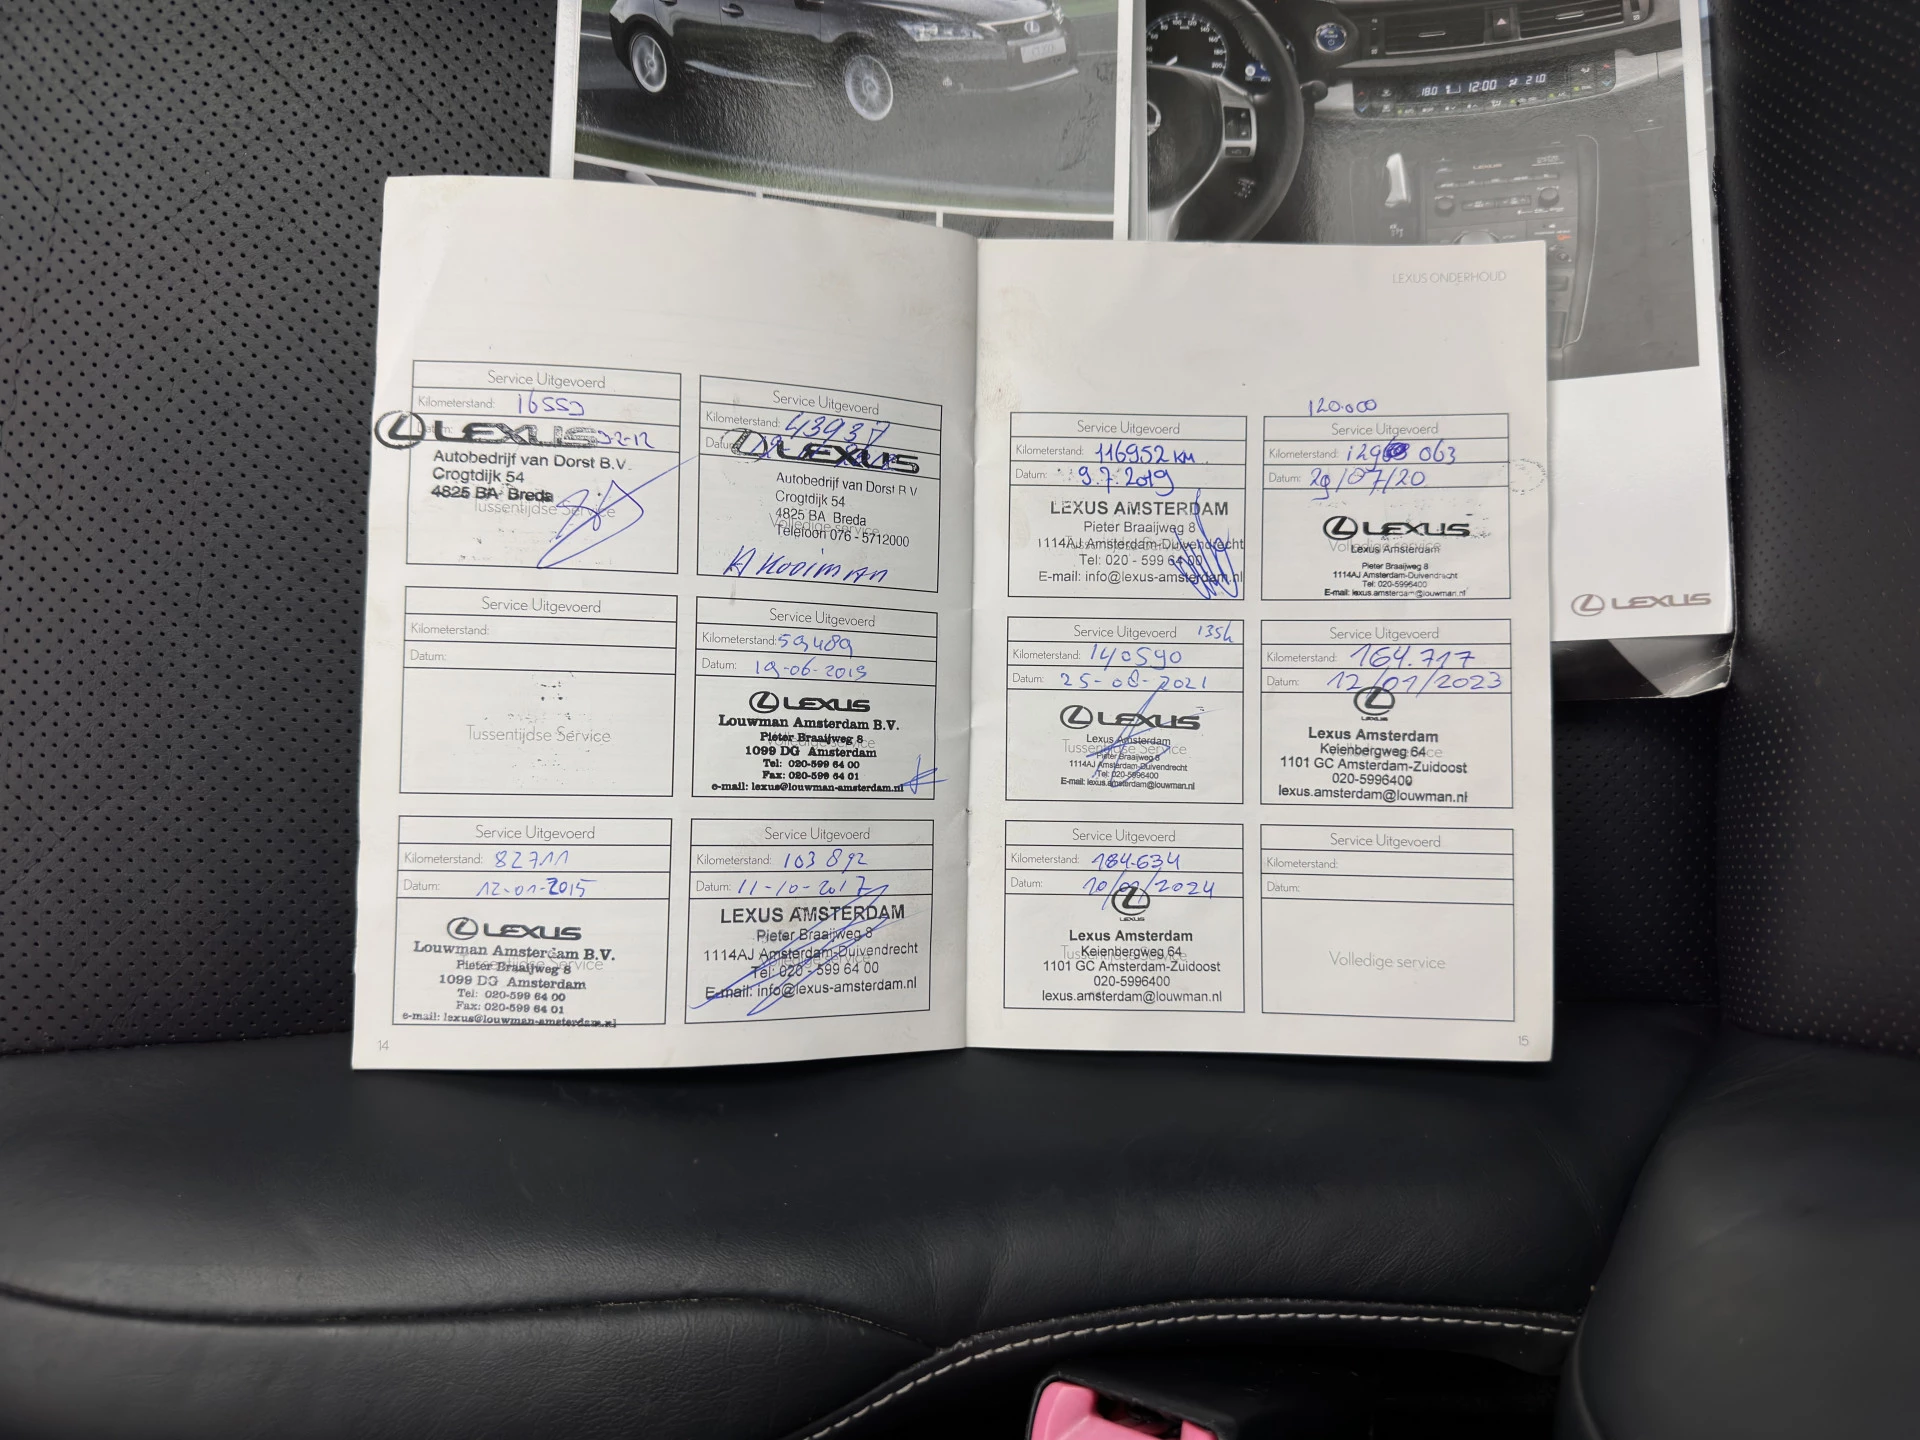 18.0 12:00 21.0
LEXUS
LEXUS
LEXUS ONDERHOUD
Service Uitgevoerd
Kilometerstand:
LEXUS
2-12
Autobedrijf van Dorst B.V.
Crogtdijk 54
4825 BA Breda
Tussentijdse Service
Service Uitgevoerd
Kilometerstand: 43937
LEXUS
Autobedrijf van Dorst B V
Crogtdijk 54
4825 BA Breda
Volledige service
Telefoon 076 - 5712000
A Kooiman
Service Uitgevoerd
Kilometerstand:
Datum:
Tussentijdse Service
Service Uitgevoerd
Kilometerstand: 59489
Datum: 19-06-2013
LEXUS
Louwman Amsterdam B.V.
Pieter Braaijweg 8
1099 DG Amsterdam
Tel: 020-599 64 00
Fax: 020-599 64 01
e-mail: lexus@louwman-amsterdam.nl
Service Uitgevoerd
Kilometerstand: 82711
Datum: 12-01-2015
LEXUS
Louwman Amsterdam B.V.
Pieter Braaijweg 8
1099 DG Amsterdam
Tel: 020-599 64 00
Fax: 020-599 64 01
e-mail: lexus@louwman-amsterdam.nl
Service Uitgevoerd
Kilometerstand: 103 892
Datum: 11-10-2017
LEXUS AMSTERDAM
Pieter Braaijweg 8
1114AJ Amsterdam-Duivendrecht
Tel: 020 - 599 64 00
E-mail: info@lexus-amsterdam.nl
14
Service Uitgevoerd
Kilometerstand: 116952 KM
Datum: 9.7.2019
LEXUS AMSTERDAM
Pieter Braaijweg 8
1114AJ Amsterdam-Duivendrecht
Tel: 020 - 599 64 00
E-mail: info@lexus-amsterdam.nl
120.000
Service Uitgevoerd
Kilometerstand: 129 063
Datum: 29/07/20
LEXUS
Volledige service
Lexus Amsterdam
Pieter Braaijweg 8
1114AJ Amsterdam-Duivendrecht
Tel: 020-5996400
E-mail: lexus.amsterdam@louwman.nl
Service Uitgevoerd
Kilometerstand: 140590
Datum: 25-08-2021
LEXUS
Lexus Amsterdam
Tussentijdse Service
Pieter Braaijweg 8
1114AJ Amsterdam-Duivendrecht
Tel: 020-5996400
E-mail: lexus.amsterdam@louwman.nl
Service Uitgevoerd
Kilometerstand: 164.717
Datum: 12/01/2023
LEXUS
Lexus Amsterdam
Keienbergweg 64
1101 GC Amsterdam-Zuidoost
020-5996400
lexus.amsterdam@louwman.nl
Service Uitgevoerd
Kilometerstand: 184.634
Datum: 10/01/2024
LEXUS
Lexus Amsterdam
Keienbergweg 64
1101 GC Amsterdam-Zuidoost
020-5996400
lexus.amsterdam@louwman.nl
Service Uitgevoerd
Kilometerstand:
Datum:
Volledige service
15